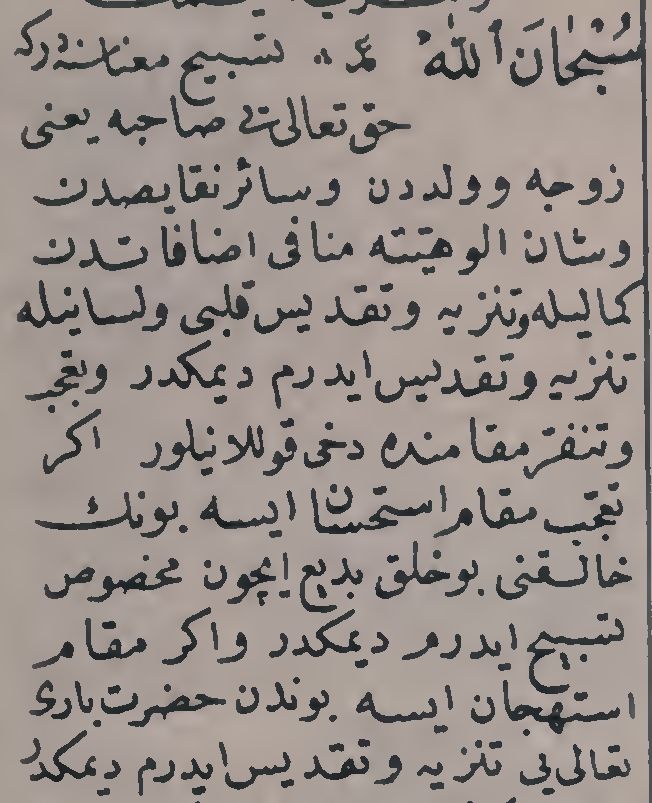 سُبْحَانَ ٱللّٰه ع « تسبيح معناسنه در كه
حق تعالى يى صاحبه يعنى
زوجه وولددن وسائر نقايصدن
وشان الوهيتنه منافى اضافاتدن
كماليله وتنزيه وتقديس قلبى ولسانيله
تنزيه وتقديس ايدرم ديمكدر وتعجب
وتنفر مقامنده دخى قوللانيلور اكر
تعجب مقام استحسان ايسه بونك
خالقنى بو خلق بديع ايچون مخصوص
تسبيح ايدرم ديمكدر واكر مقام
استهجان ايسه بوندن حضرت بارى
تعالى يى تنزيه وتقديس ايدرم ديمكدر